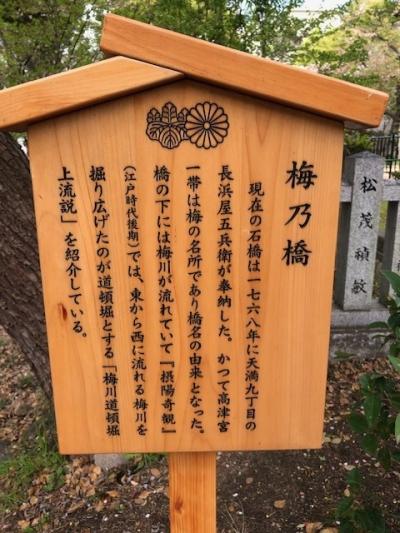 梅乃橋
現在の石橋は一七六八年に天満九丁目の
長浜屋五兵衛が奉納した。かつて高津宮
一帯は梅の名所であり橋名の由来となった。
橋の下には梅川が流れていて『摂陽奇観』
(江戸時代後期)では、東から西に流れる梅川を
掘り広げたのが道頓堀とする「梅川道頓堀
上流説」を紹介している。
松茂禎敏